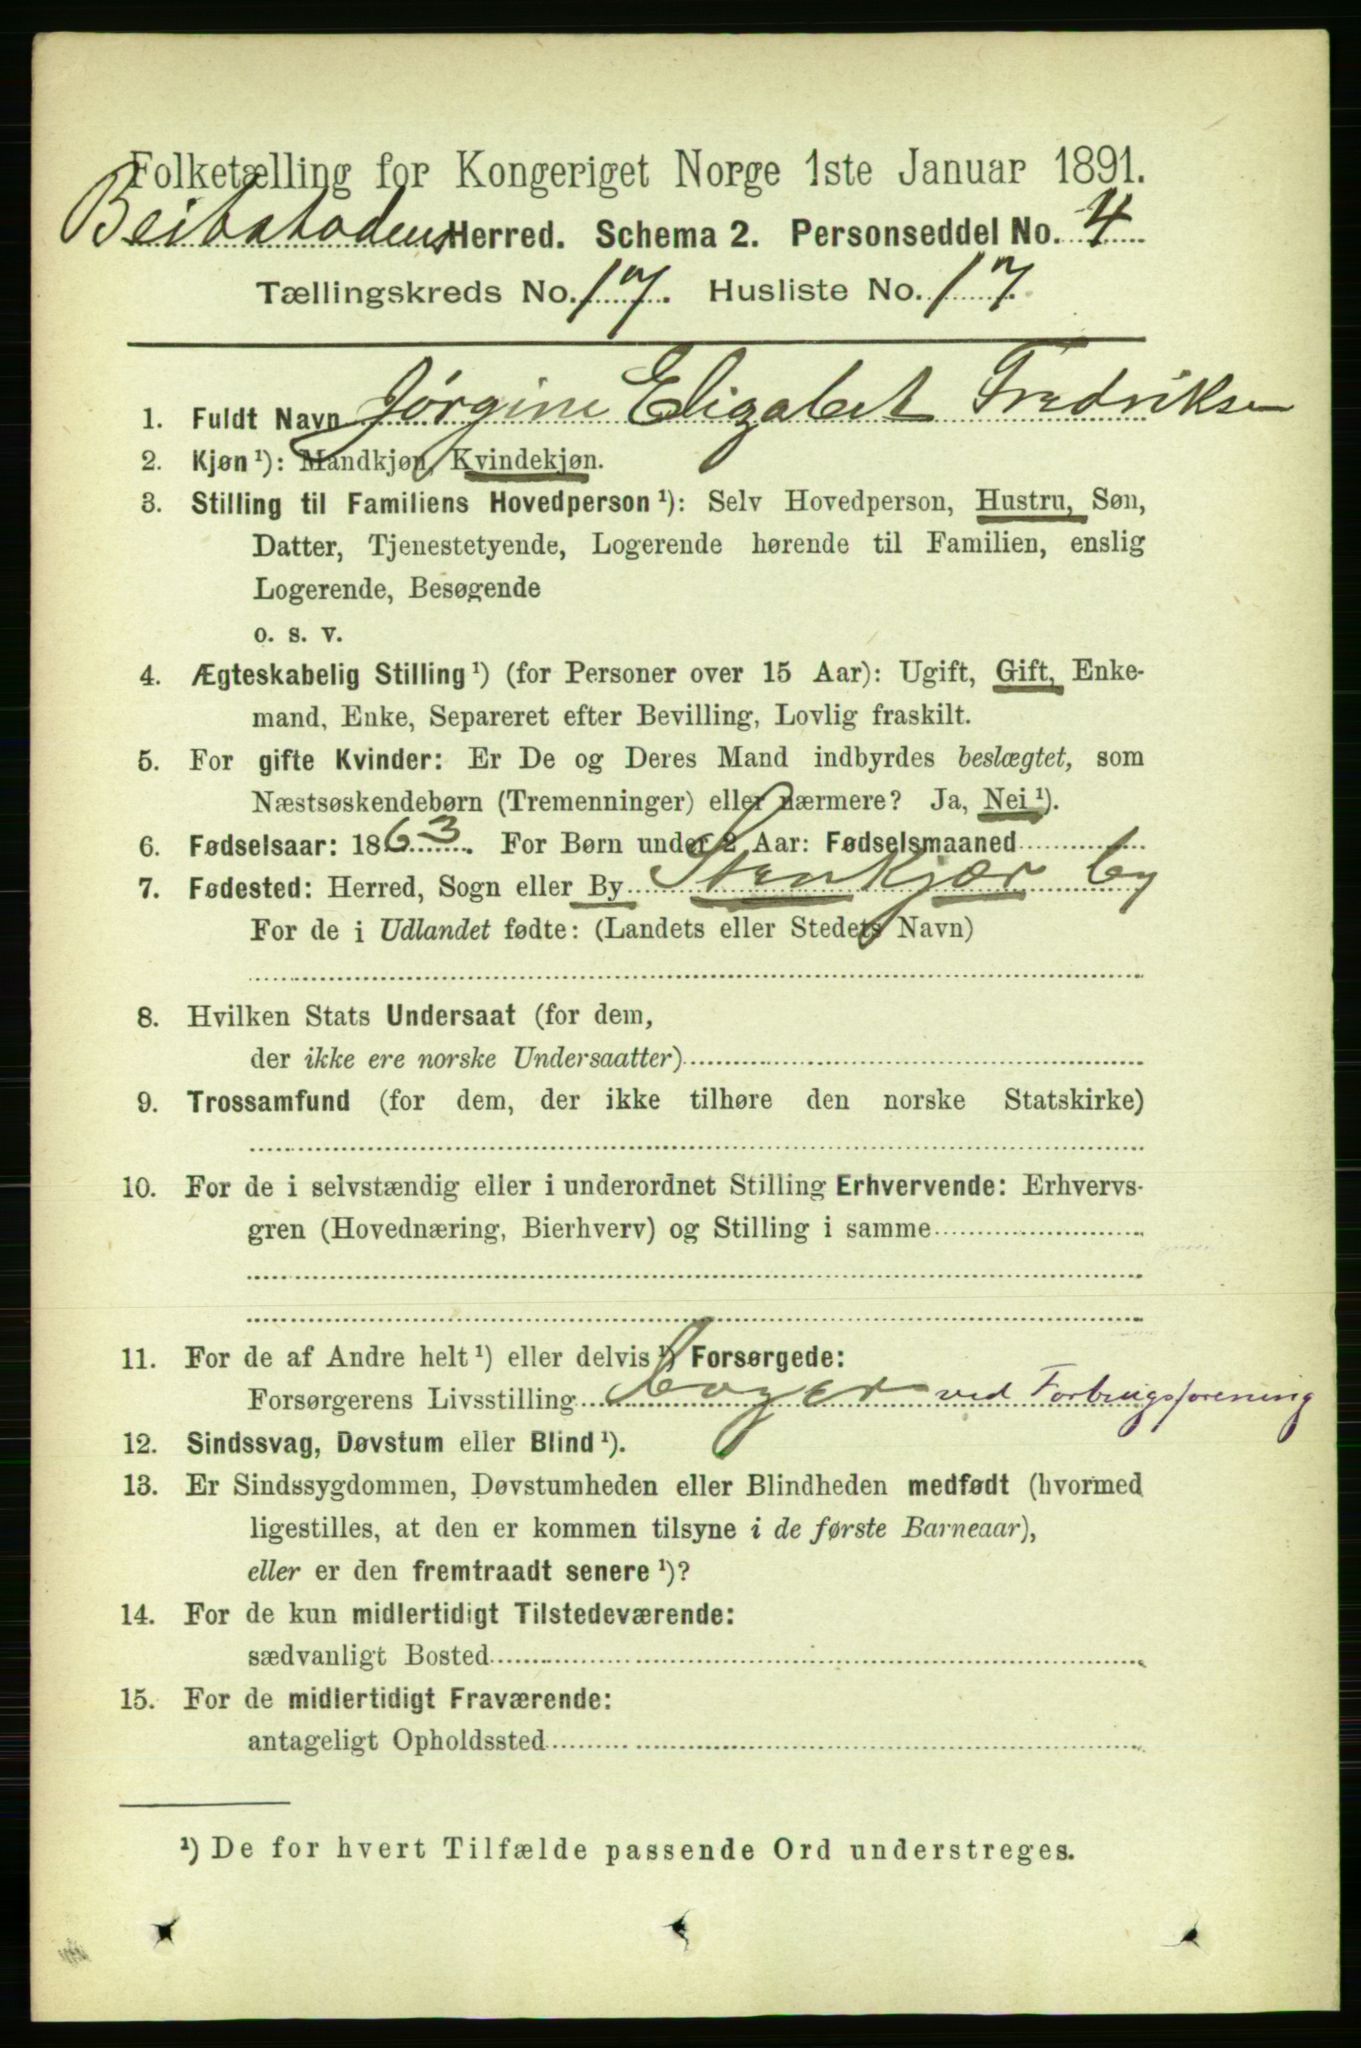 Folketælling for Kongeriget Norge 1ste Januar 1891.
Beitstadens Herred. Schema 2. Personseddel No. 4
Tællingskreds No. 17. Husliste No. 17.
1. Fuldt Navn Jørgine Elizabet Fredriksen
2. Kjøn¹): Mandkjøn, Kvindekjøn.
3. Stilling til Familiens Hovedperson¹): Selv Hovedperson, Hustru, Søn,
Datter, Tjenestetyende, Logerende hørende til Familien, enslig
Logerende, Besøgende
o. s. v.
4. Ægteskabelig Stilling¹) (for Personer over 15 Aar): Ugift, Gift, Enke-
mand, Enke, Separeret efter Bevilling, Lovlig fraskilt.
5. For gifte Kvinder: Er De og Deres Mand indbyrdes beslægtet, som
Næstsøskendebørn (Tremenninger) eller nærmere? Ja, Nei¹).
6. Fødselsaar: 1863. For Børn under 2 Aar: Fødselsmaaned
7. Fødested: Herred, Sogn eller By Stenkjær by
For de i Udlandet fødte: (Landets eller Stedets Navn)
8. Hvilken Stats Undersaat (for dem,
der ikke ere norske Undersaatter)
9. Trossamfund (for dem, der ikke tilhøre den norske Statskirke)
10. For de i selvstændig eller i underordnet Stilling Erhvervende: Erhvervs-
gren (Hovednæring, Bierhverv) og Stilling i samme
11. For de af Andre helt¹) eller delvis¹) Forsørgede:
Forsørgerens Livsstilling Bager ved Forbrugsforening
12. Sindssvag, Døvstum eller Blind¹).
13. Er Sindssygdommen, Døvstumheden eller Blindheden medfødt (hvormed
ligestilles, at den er kommen tilsyne i de første Barneaar),
eller er den fremtraadt senere¹)?
14. For de kun midlertidigt Tilstedeværende:
sædvanligt Bosted
15. For de midlertidigt Fraværende:
antageligt Opholdssted
¹) De for hvert Tilfælde passende Ord understreges.